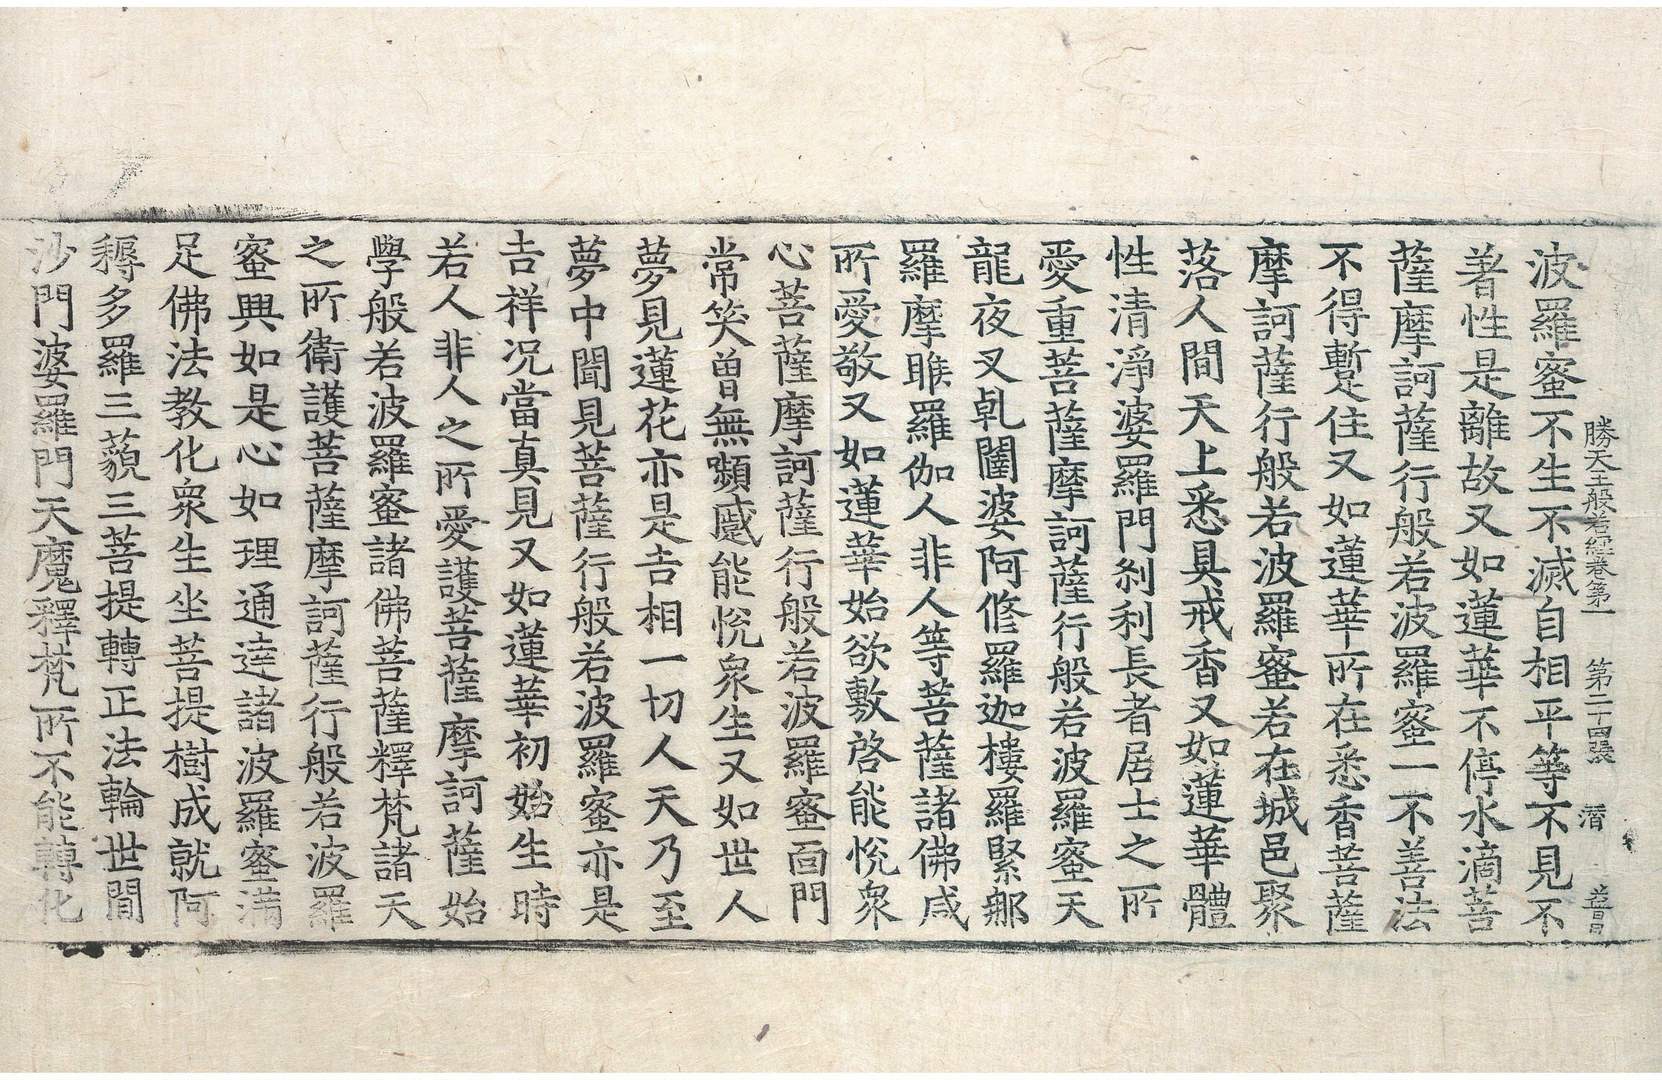 勝天王般若經卷第一　第二十四張　潛
波羅蜜不生不滅自相平等不見不
著性是離故又如蓮華不停水滴菩
薩摩訶薩行般若波羅蜜一不善法
不得暫住又如蓮華所在悉香菩薩
摩訶薩行般若波羅蜜若在城邑聚
落人間天上悉具戒香又如蓮華體
性清淨婆羅門刹利長者居士之所
愛重菩薩摩訶薩行般若波羅蜜天
龍夜叉乹闥婆阿修羅迦樓羅緊那
羅摩睺羅伽人非人等菩薩諸佛咸
所愛敬又如蓮華始欲敷啓能悅衆
心菩薩摩訶薩行般若波羅蜜面門
常笑曾無嚬蹙能悅衆生又如世人
夢見蓮花亦是吉相一切人天乃至
夢中聞見菩薩行般若波羅蜜亦是
吉祥况當真見又如蓮華初始生時
若人非人之所愛護菩薩摩訶薩始
學般若波羅蜜諸佛菩薩釋梵諸天
之所衛護菩薩摩訶薩行般若波羅
蜜興如是心如理通達諸波羅蜜滿
足佛法教化衆生坐菩提樹成就阿
耨多羅三藐三菩提轉正法輪世間
沙門婆羅門天魔釋梵所不能轉化